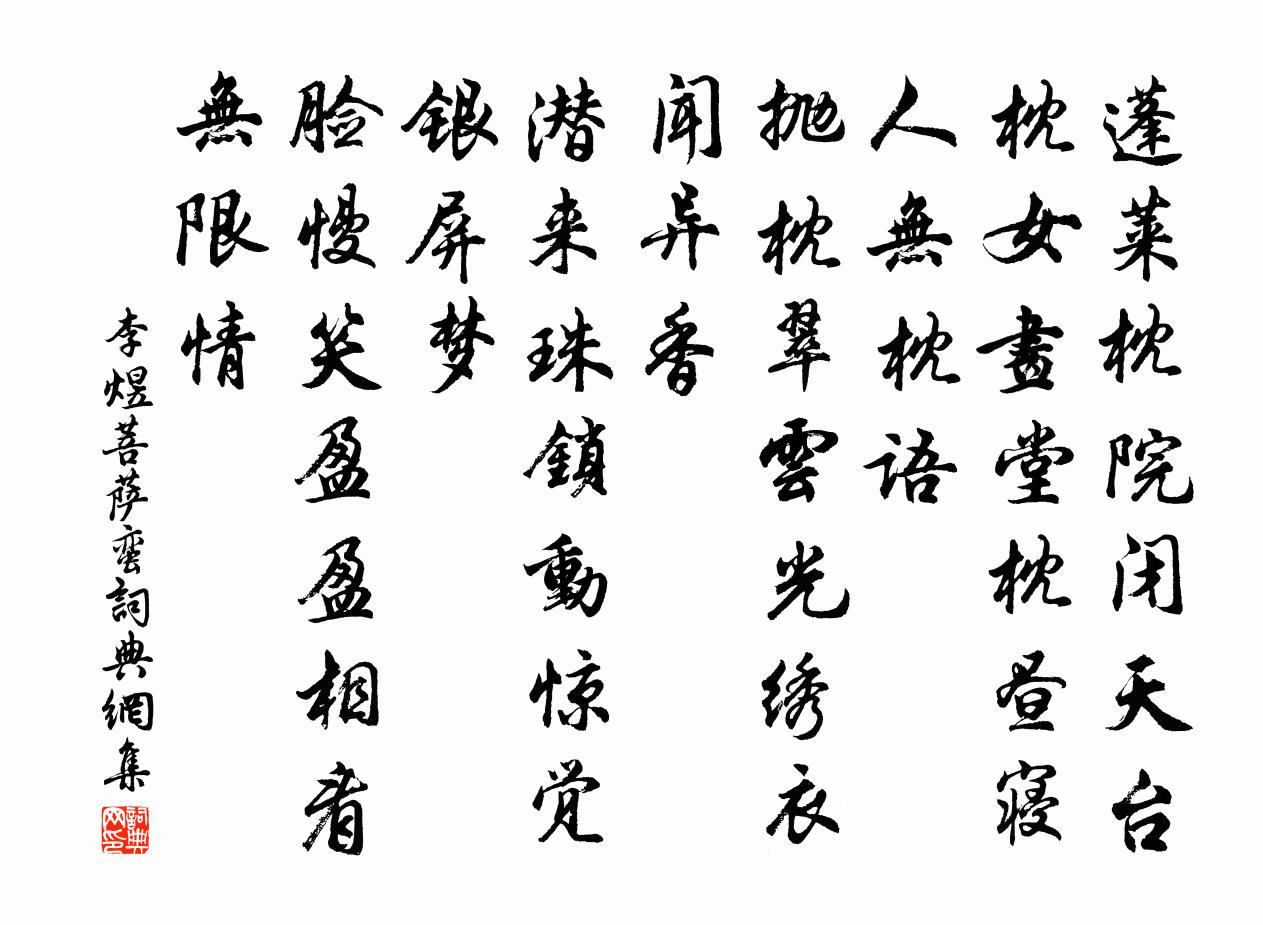 蓬莱枕院闭天台
枕女畫堂枕昼寝
人無枕語
抛枕翠雲光绣衣
闻异香
潜来珠鎖動惊觉
銀屏梦
脸慢笑盈盈相看
無限情
李煜菩萨蛮詞典網集
詞典网印